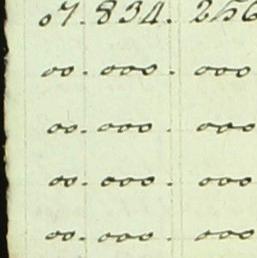 07. 834. 256
00. 000. 000
00. 000. 000
00. 000. 000
00. 000. 000